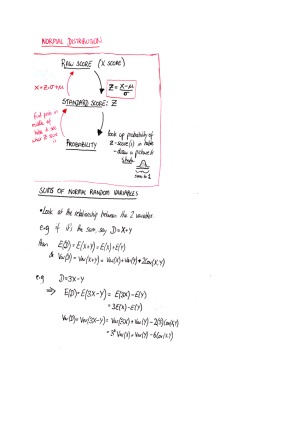 NORMAL DISTRIBUTION
RAW SCORE (X SCORE)
X = Z·σ + μ
Z = X-μ / σ
STANDARD SCORE: Z
find prob in
middle of
table to see
what Z score
look up probability of
Z-score(s) in table
- draw a picture to
PROBABILITY
sums to 1
SUMS OF NORMAL RANDOM VARIABLES
• Look at the relationship between the 2 variables
e.g. if it's the sum, say D = X+Y
then E(D) = E(X+Y) = E(X)+E(Y)
& Var(D) = Var(X+Y) = Var(X)+Var(Y)+2Cov(X,Y)
e.g. D=3X-Y
⇒ E(D) = E(3X-Y) = E(3X)-E(Y)
= 3E(X)-E(Y)
Var(D) = Var(3X-Y) = Var(3X)+Var(Y)-2(3)Cov(X,Y)
= 3²Var(X)+Var(Y)-6Cov(X,Y)